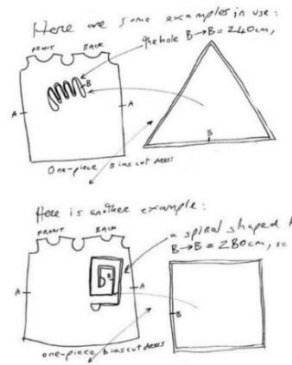 Here are some examples in use:
FRONT BACK
the hole B → B = 240cm,
B
A A
B
One-piece bias cut dress
Here is another example:
FRONT BACK
a spiral shaped
B → B = 280cm, so
A A
B B
one-piece bias cut dress